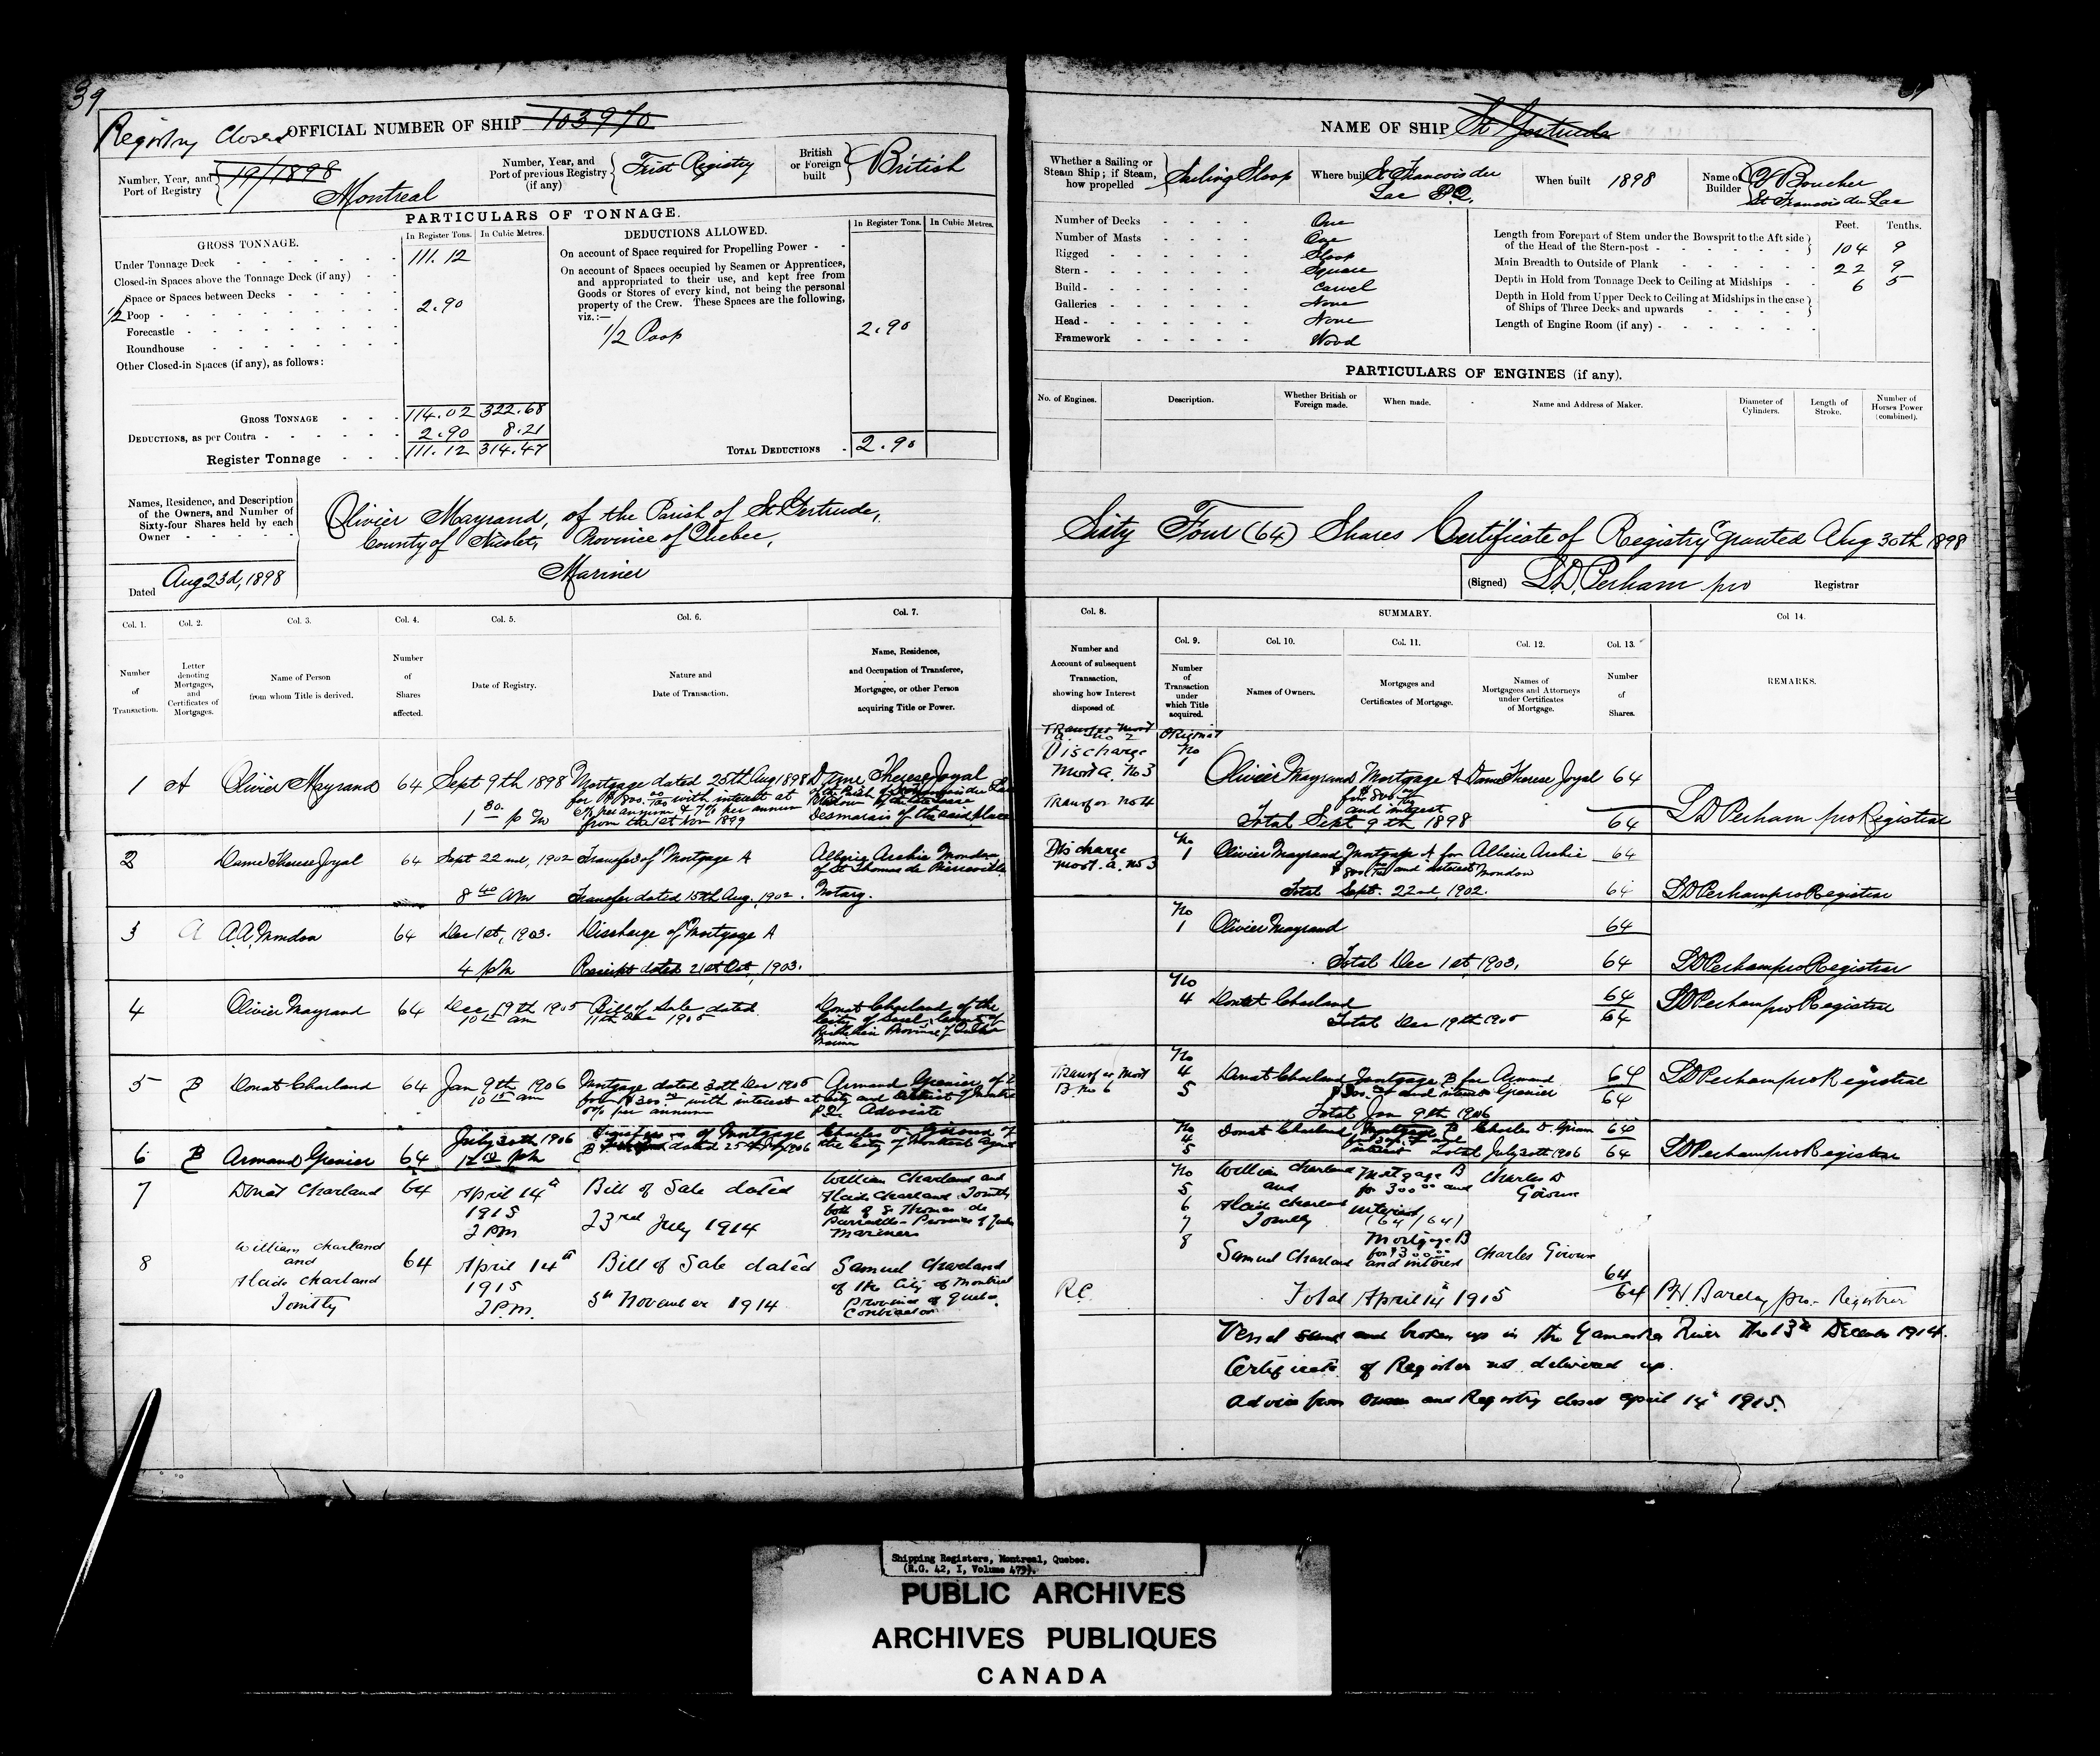 39
Registry Closed OFFICIAL NUMBER OF SHIP 103970
Number, Year, and Port of Registry 19/1898 Montreal
Number, Year, and Port of previous Registry (if any) First Registry
British or Foreign built British
PARTICULARS OF TONNAGE.
GROSS TONNAGE. In Register Tons. In Cubic Metres.
Under Tonnage Deck 111.12
Closed-in Spaces above the Tonnage Deck (if any)
Space or Spaces between Decks
1/2 Poop 2.90
Forecastle
Roundhouse
Other Closed-in Spaces (if any), as follows:
GROSS TONNAGE 114.02 322.68
DEDUCTIONS, as per Contra 2.90 8.21
Register Tonnage 111.12 314.47
DEDUCTIONS ALLOWED. In Register Tons. In Cubic Metres.
On account of Space required for Propelling Power
On account of Spaces occupied by Seamen or Apprentices,
and appropriated to their use, and kept free from
Goods or Stores of every kind, not being the personal
property of the Crew. These Spaces are the following,
viz.:—
1/2 Poop 2.90
TOTAL DEDUCTIONS 2.90
Names, Residence, and Description
of the Owners, and Number of
Sixty-four Shares held by each
Owner
Olivier Mayrand, of the Parish of St Gertrude,
County of Nicolet, Province of Quebec,
Mariner
Dated Aug 23d, 1898
Col. 1. Col. 2. Col. 3. Col. 4. Col. 5. Col. 6. Col. 7.
Number of Transaction.
Letter denoting Mortgages, and Certificates of Mortgages.
Name of Person from whom Title is derived.
Number of Shares affected.
Date of Registry.
Nature and Date of Transaction.
Name, Residence, and Occupation of Transferee, Mortgagee, or other Person acquiring Title or Power.
1 A Olivier Mayrand 64 Sept 9th 1898 Mortgage dated 25th Aug 1898 Dame Therese Joyal
1 30 p m for $800.00 with interest at
6% per annum & 7% per annum
from the 1st Nov 1899
Desmarais of the said place
2 Dame Therese Joyal 64 Sept 22nd, 1902 Transfer of Mortgage A Alberic Archie Mondou
of St Thomas de Pierreville
8 40 am Transfer dated 15th Aug. 1902. Notary.
3 A A.A. Mondou 64 Dec 1st, 1903. Discharge of Mortgage A
4 pm Receipt dated 21st Oct, 1903.
4 Olivier Mayrand 64 Dec 19th 1905 Bill of Sale dated Donat Charland of the
10 15 am 11th Dec 1905 City of Sorel, County of
Richelieu Province of Quebec
Mariner
5 B Donat Charland 64 Jan 9th 1906 Mortgage dated 30th Dec 1905 Armand Grenier of
10 15 am for $300.00 with interest at city and District of Montreal
P.Q. Advocate
6 B Armand Grenier 64 July 30th 1906 Transfer of Mortgage
B dated 25th July 1906 the City of Montreal Agent
7 Donat Charland 64 April 14th Bill of Sale dated William Charland and
1915 Alaide Charland Jointly
2 PM 23rd July 1914 both of St Thomas de
Pierreville - Province of Quebec
Mariners
8 William Charland and 64 April 14th Bill of Sale dated Samuel Charland
Alaide Charland 1915 of the City of Montreal
Jointly 2 P.M. 5th November 1914 Province of Quebec
Contractor
NAME OF SHIP St Gertrude
Whether a Sailing or Steam Ship; if Steam, how propelled Sailing Sloop
Where built St Francois du Lac P.Q.
When built 1898
Name of Builder Boucher St Francois du Lac
Number of Decks One
Number of Masts One
Rigged Sloop
Stern Square
Build Carvel
Galleries None
Head None
Framework Wood
Feet. Tenths.
Length from Forepart of Stem under the Bowsprit to the Aft side
of the Head of the Stern-post 104 9
Main Breadth to Outside of Plank 22 9
Depth in Hold from Tonnage Deck to Ceiling at Midships 6 5
Depth in Hold from Upper Deck to Ceiling at Midships in the case
of Ships of Three Decks and upwards
Length of Engine Room (if any)
PARTICULARS OF ENGINES (if any).
No. of Engines. Description. Whether British or Foreign made. When made. Name and Address of Maker. Diameter of Cylinders. Length of Stroke. Number of Horses Power (combined).
Sixty Four (64) Shares Certificate of Registry granted Aug 30th 1898
(Signed) L.D. Perham pro Registrar
Col. 8. SUMMARY. Col 14.
Col. 9. Col. 10. Col. 11. Col. 12. Col. 13.
Number and Account of subsequent Transaction, showing how Interest disposed of.
Number of Transaction under which Title acquired.
Names of Owners.
Mortgages and Certificates of Mortgage.
Names of Mortgagees and Attorneys under Certificates of Mortgage.
Number of Shares.
REMARKS.
Transfer Mort
a. no 2 Original
Discharge No
Mort a. No 3 1 Olivier Mayrand Mortgage A Dame Therese Joyal 64
for $800.00
and interest
Transfer No 4 Total Sept 9th 1898 64 LD Perham pro Registrar
Discharge No
Mort. a. No 3 1 Olivier Mayrand Mortgage A for Alberic Archie 64
$800.00 and interest Mondou
Total Sept. 22nd, 1902. 64 LD Perham pro Registrar
No
1 Olivier Mayrand 64
Total Dec 1st, 1903. 64 LD Perham pro Registrar
No
4 Donat Charland 64 LD Perham pro Registrar
Total Dec 19th 1905 64
No
Transfer Mort 4 Donat Charland Mortgage B for Armand 64 LD Perham pro Registrar
B. No 6 5 $300.00 and interest Grenier 64
Total Jan 9th 1906
No
4 Donat Charland Mortgage B Charles D. 64
5 interest Total July 30th 1906 64 LD Perham pro Registrar
No William Charland Mortgage B Charles D
5 and for 300.00 and
6 Alaide Charland interest
7 Jointly (64/64)
8 Mortgage B
Samuel Charland for $300.00 Charles
and interest
64
R.C. Total April 14th 1915 64 P.H. Barclay pro. Registrar
Vessel broken up in the Yamaska River the 13th December 1914.
Certificate of Register not delivered up.
Advice from owner and Registry closed April 14th 1915.
Shipping Registers, Montreal, Quebec.
(R.G. 42, I, Volume 479).
PUBLIC ARCHIVES
ARCHIVES PUBLIQUES
CANADA